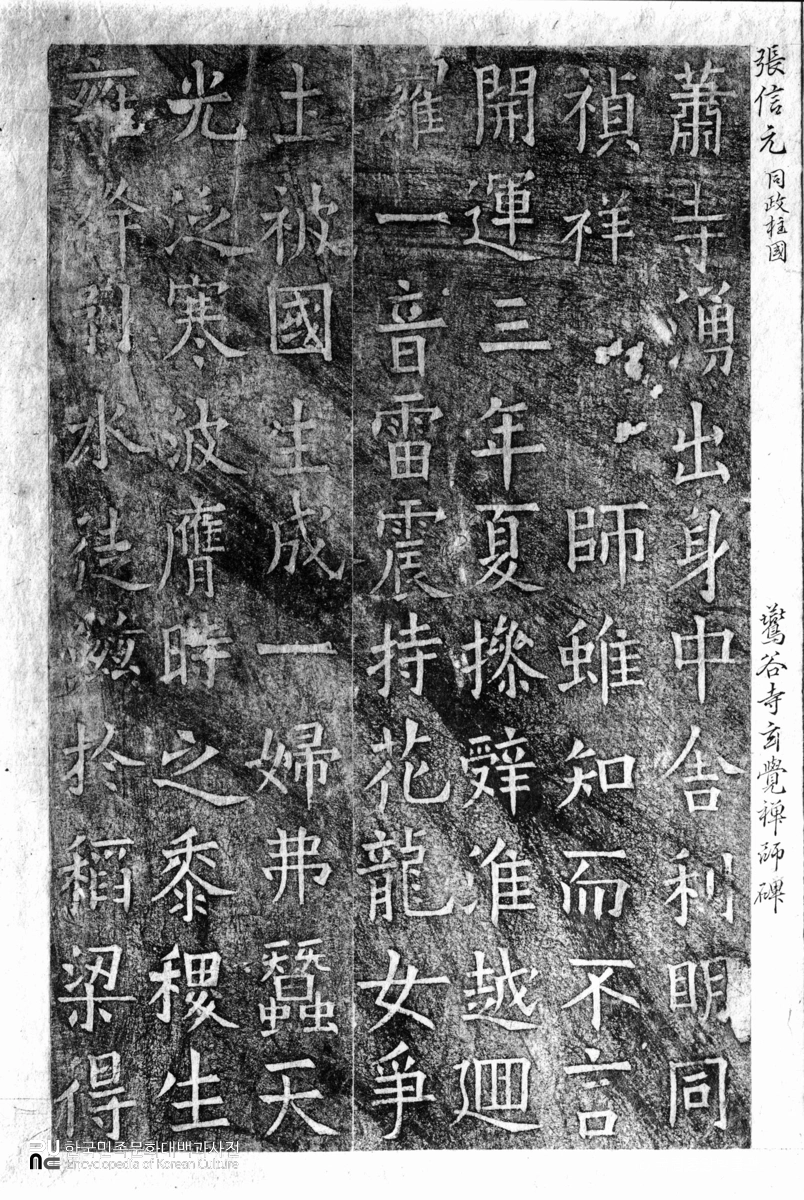 張信元 同政柱國
鷰谷寺玄覺禪師碑
蕭寺湧出身中舍利明同
禎祥 師雖知而不言
開運三年夏摻辭淮越迴
一音雷震持花龍女爭
土被國生成一婦弗蠶天
光泛寒波膺時之黍稷生
水 於稻梁得
한국민족문화대백과사전
Encyclopedia of Korean Culture